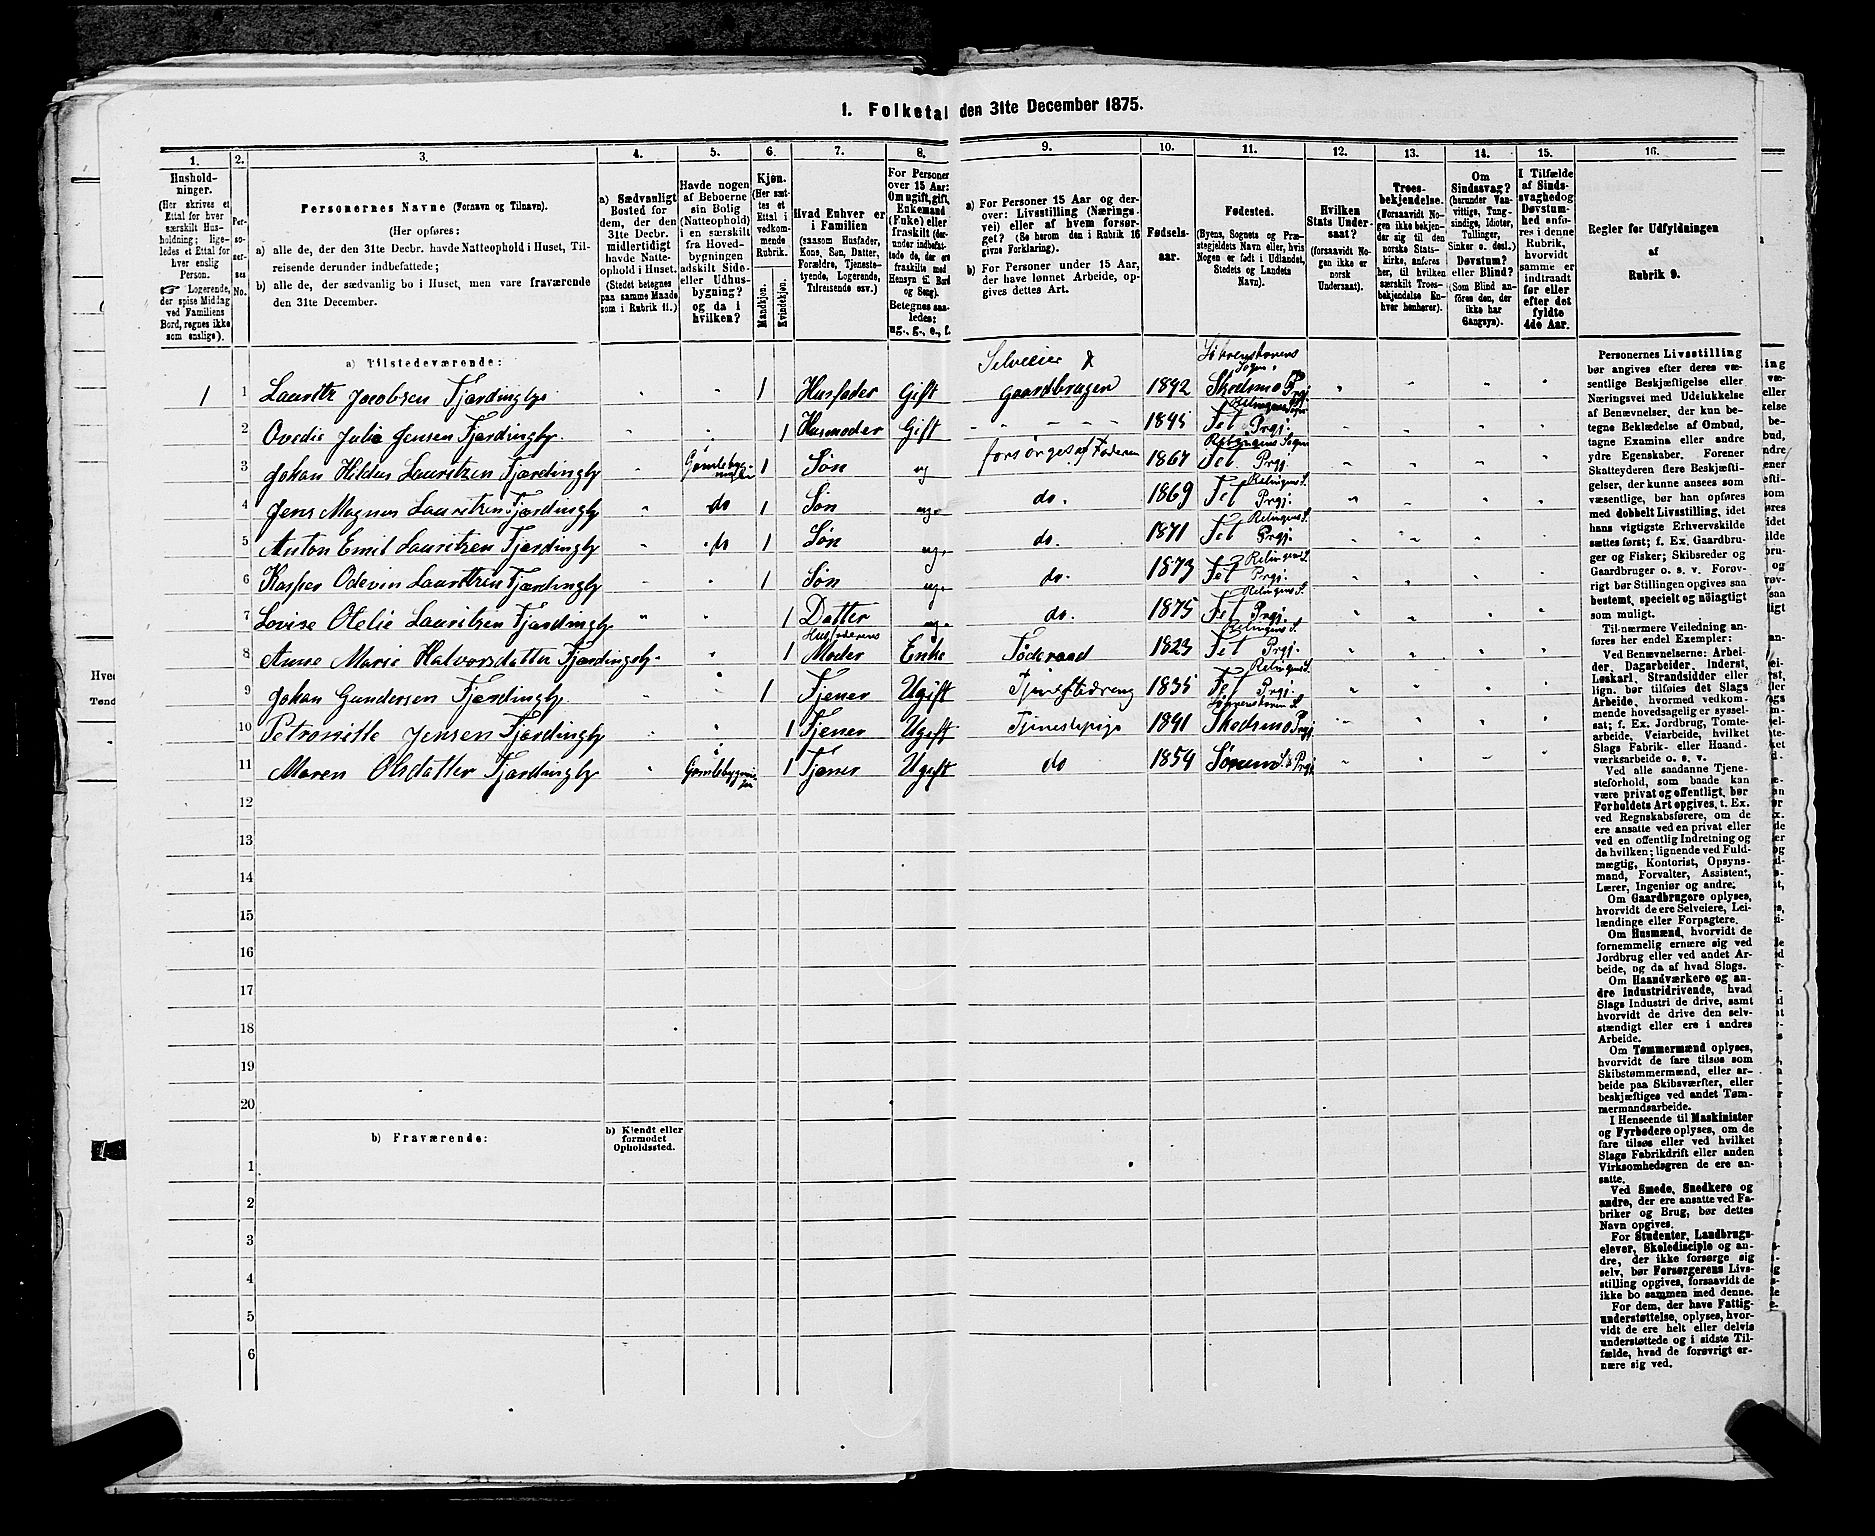 1. Folketal den 31te December 1875.
1. 2. 3. 4. 5. 6. 7. 8. 9. 10. 11. 12. 13. 14. 15. 16.
Hushold-
ninger.
(Her skrives et
Ettal for hver
særskilt Hus-
holdning; lige-
ledes et Ettal
for hver enslig
Person.
☞ Logerende,
der spise Middag
ved Familiens
Bord, regnes ikke
som enslige).
Per-
so-
ner-
nes
No.
Personernes Navne (Fornavn og Tilnavn).
(Her opføres:
a) alle de, der den 31te Decbr. havde Natteophold i Huset, Til-
reisende derunder indbefattede;
b) alle de, der sædvanlig bo i Huset, men vare fraværende
den 31te December.
a) Sædvanligt
Bosted for
dem, der den
31te Decbr.
midlertidigt
havde Natte-
ophold i Huset.
(Stedet betegnes
paa samme Maade
som i Rubrik 11.)
Havde nogen
af Beboerne
sin Bolig
(Natteophold)
i en særskilt
fra Hoved-
bygningen
adskilt Side-
eller Udhus-
bygning?
og da i
hvilken?
Kjøn.
(Her sæt-
tes et
Ettal i
vedkom-
mende
Rubrik.
Mandkjøn.
Kvindekjøn.
Hvad Enhver er
i Familien
(saasom Husfader,
Kone, Søn, Datter,
Forældre, Tjeneste-
tyende, Logerende,
Tilreisende osv.)
For Personer
over 15 Aar:
Om ugift, gift,
Enkemand
(Enke) eller
fraskilt (der-
under indbefat-
tede de, der ere
fraskilte med
Hensyn til Bord
og Seng).
Betegnes saa-
ledes:
ug., g., e., f.
a) For Personer 15 Aar og der-
over: Livsstilling (Nærings-
vei) eller af hvem forsør-
get? (Se herom den i Rubrik 16
givne Forklaring).
b) For Personer under 15 Aar,
der have lønnet Arbeide, op-
gives dettes Art.
Fødsels-
aar.
Fødested.
(Byens, Sognets og Præ-
stegjeldets Navn eller, hvis
Nogen er født i Udlandet,
Stedets og Landets
Navn).
Hvilken
Stats Under-
saat?
(forsaavidt No-
gen ikke er
norsk
Undersaat).
Troes-
bekjendelse.
(Forsaavidt No-
gen ikke bekjen-
der sig til den
norske Stats-
kirke, anføres
her, til hvilken
særskilt Troes-
bekjendelse En-
hver henhører).
Om
Sindssvag?
(herunder Van-
vittige, Tung-
sindige, Idioter,
Tullinger,
Sinker o. desl.)
Døvstum?
eller Blind?
(Som Blind an-
føres den, der
ikke har
Gangsyn).
I Tilfælde
af Sinds-
svaghed og
Døvstum-
hed anfø-
res i denne
Rubrik,
hvorvidt
samme er
indtraadt
før eller
efter det
fyldte
4de Aar.
Regler for Udfyldningen
af
Rubrik 9.
a) Tilstedeværende:
1 1 Lauritz Jacobsen Fjærdingby " " 1 Husfader Gift Selveier & gaardbruger 1842 Løbrenskovens Sogn, Skedsmo Prgj. " " " "
2 Ovedie Julie Jensen Fjærdingby. " " 1 Husmoder Gift " 1845 Relingens Sogn Fet Prgj. " " " "
3 Johan Hildus Lauritzen Fjærdingby " Gamlebyg- 1 Søn ug forsørges af Faderen 1867 Relingens Sogn Fet Prgj. " " " "
4 Jens Magnus Lauritzen Fjærdingby " do 1 Søn ug. do. 1869 Relingens S. Fet Prgj. " " " "
5 Anton Emil Lauritzen Fjærdingby " do 1 Søn ug. do. 1871 Relingens S. Fet Prgj. " " " "
6 Kasper Odevin Lauritzen Fjærdingby " " 1 Søn ug. do. 1873 Relingens S. Fet Prgj. " " " "
7 Lovise Otelie Lauritzen Fjærdingby " " 1 Datter ug. do. 1875 Relingens S. Fet Prgj. " " " "
8 Anne Marie Halvorsdatter Fjærdingby. " 1 Husfaderens Moder Enke Føderaad 1823 Relingens S. Fet Prgj. " " " "
9 Johan Gundersen Fjærdingby. " " 1 Tjener Ugift Tjenestedreng 1835 Relingens S. Fet Prgj. " " " "
10 Petronille Jensen Fjærdingby " " 1 Tjener Ugift Tjenestepige 1841 Skedsmo Prgj. " " " "
11 Maren Olsdatter Fjærdingby " 1 Tjener Ugift do 1854 Sørum S. & Prgj. " " " "
12
13
14
15
16
17
18
19
20
b) Fraværende:
b) Kjendt eller
formodet
Opholdssted.
1
2
3
4
5
6
Personernes Livsstilling
bør angives efter deres væ-
sentlige Beskjæftigelse eller
Næringsvei med Udelukkelse
af Benævnelser, der kun be-
tegne Beklædelse af Ombud,
tagne Examina eller andre
ydre Egenskaber. Forener
Skatteyderen flere Beskjæfti-
gelser, der kunne ansees som
væsentlige, bør han opføres
med dobbelt Livsstilling, idet
hans vigtigste Erhvervskilde
sættes først; f. Ex. Gaardbru-
ger og Fisker; Skibsreder og
Gaardbruger o. s. v. Forøv-
rigt bør Stillingen opgives saa
bestemt, specielt og nöiagtigt
som muligt.
Til nærmere Veiledning an-
føres her endel Exempler:
Ved Benævnelserne: Arbei-
der, Dagarbeider, Inderst,
Løskarl, Strandsidder eller
lign. bør tilføies det Slags
Arbeide, hvormed vedkom-
mende hovedsagelig er syssel-
sat; f. Ex. Jordbrug, Tomte-
arbeide, Veiarbeide, hvilket
Slags Fabrik- eller Haand-
værksarbeide o. s. v.
Ved alle saadanne Tjene-
steforhold, som baade kan
være privat og offentligt, bør
Forholdets Art opgives, t. Ex.
ved Regnskabsførere, om de
ere ansatte ved en privat eller
ved en offentlig Indretning og
da hvilken; lignende ved Fuld-
mægtig, Kontorist, Opsyns-
mand, Forvalter, Assistent,
Lærer, Ingeniør og andre.
Om Gaardbrugere oplyses,
hvorvidt de ere Selveiere, Lei-
lændinge eller Forpagtere.
Om Husmænd, hvorvidt de
fornemmelig ernære sig ved
Jordbrug eller ved andet Ar-
beide, og da af hvad Slags.
Om Haandværkere og an-
dre Industridrivende, hvad
Slags Industri de drive, samt
hvorvidt de drive den selv-
stændigt eller ere i andres
Arbeide.
Om Tømmermænd oplyses,
hvorvidt de fare tilsøs som
Skibstømmermænd, eller ar-
beide paa Skibsværfter, eller
beskjæftiges ved andet Tøm-
mermandsarbeide.
I Henseende til Maskinister
og Fyrbødere oplyses, om de
fare tilsøs eller ved hvilket
Slags Fabrikdrift eller anden
Virksomhedsgren de ere an-
satte.
Ved Smede, Snedkere og
andre, der ere ansatte ved Fa-
briker og Brug, bør dettes
Navn opgives.
For Studenter, Landbrugs-
elever, Skoledisciple og an-
dre, der ikke forsørge sig
selv, bør Forsørgerens Livs-
stilling opgives, forsaavidt de
ikke bo sammen med denne.
For dem, der have Fattig-
understøttelse, oplyses, hvor-
vidt de ere helt eller delvis
understøttede og i sidste Til-
fælde, hvad de forøvrigt er-
nære sig ved.